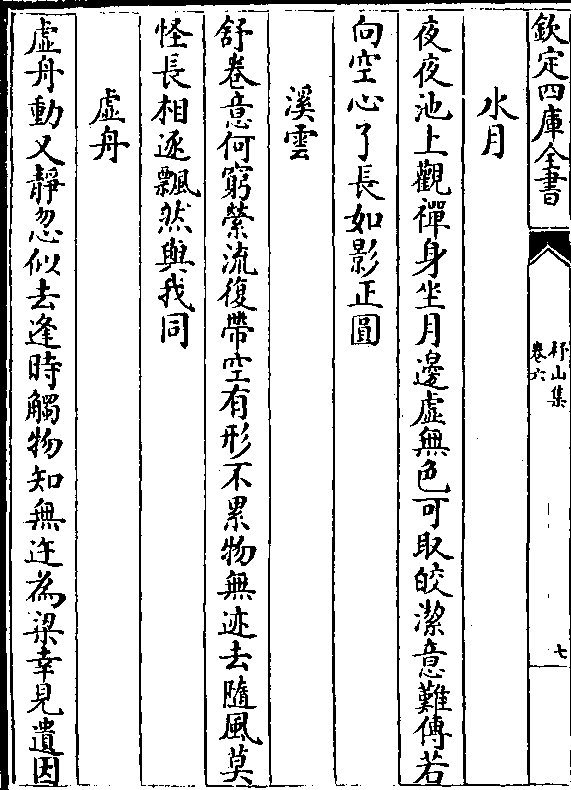 欽定四庫全書
杼山集
卷六
七
水月
夜夜池上觀禪身坐月邊虛無色可取皎潔意難傳若
向空心了長如影正圓
溪雲
舒卷意何窮縈流復帶空有形不累物無迹去隨風莫
怪長相逐飄然與我同
虛舟
虛舟動又靜忽似去逢時觸物知無迕為梁幸見遺因